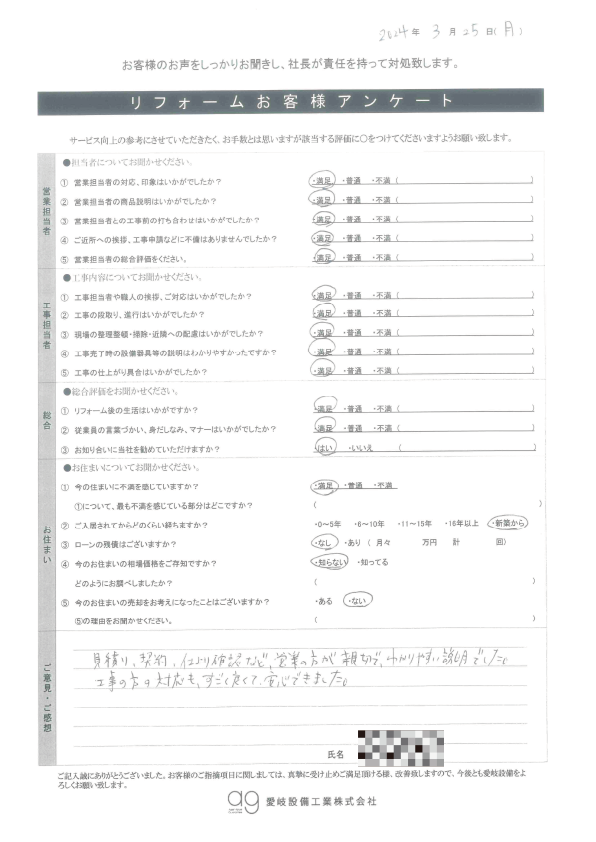 2024年 3月 25日(月)
お客様のお声をしっかりお聞きし、社長が責任を持って対処致します。
リフォームお客様アンケート
サービス向上の参考にさせていただきたく、お手数とは思いますが該当する評価に○をつけてくださいますようお願い致します。
営業担当者
●担当者についてお聞かせください。
① 営業担当者の対応、印象はいかがでしたか? ・満足 ・普通 ・不満 (
② 営業担当者の商品説明はいかがでしたか? ・満足 ・普通 ・不満 (
③ 営業担当者との工事前の打ち合わせはいかがでしたか? ・満足 ・普通 ・不満 (
④ ご近所への挨拶、工事申請などに不備はありませんでしたか? ・満足 ・普通 ・不満 (
⑤ 営業担当者の総合評価をください。 ・満足 ・普通 ・不満 (
工事担当者
●工事内容についてお聞かせください。
① 工事担当者や職人の挨拶、ご対応はいかがでしたか? ・満足 ・普通 ・不満 (
② 工事の段取り、進行はいかがでしたか? ・満足 ・普通 ・不満 (
③ 現場の整理整頓・掃除・近隣への配慮はいかがでしたか? ・満足 ・普通 ・不満 (
④ 工事完了時の設備器具等の説明はわかりやすかったですか? ・満足 ・普通 ・不満 (
⑤ 工事の仕上がり具合はいかがでしたか? ・満足 ・普通 ・不満 (
総合
●総合評価をお聞かせください。
① リフォーム後の生活はいかがですか? ・満足 ・普通 ・不満 (
② 従業員の言葉づかい、身だしなみ、マナーはいかがでしたか? ・満足 ・普通 ・不満 (
③ お知り合いに当社を勧めていただけますか? ・はい ・いいえ (
お住まい
●お住まいについてお聞かせください。
① 今の住まいに不満を感じていますか? ・満足 ・普通 ・不満
①について、最も不満を感じている部分はどこですか? ( )
② ご入居されてからどのくらい経ちますか? ・0～5年 ・6～10年 ・11～15年 ・16年以上 ・新築から
③ ローンの残債はございますか? ・なし ・あり ( 月々 万円 計 回)
④ 今のお住まいの相場価格をご存知ですか? ・知らない ・知ってる
どのようにお調べしましたか? ( )
⑤ 今のお住まいの売却をお考えになったことはございますか? ・ある ・ない
⑤の理由をお聞かせください。 ( )
ご意見・ご感想
見積り、契約、仕上り確認など、営業の方が親切で、わかりやすい説明でした。
工事の方の対応も、すごく良くて、安心できました。
氏名
ご記入誠にありがとうございました。お客様のご指摘項目に関しましては、真摯に受け止めご満足頂ける様、改善致しますので、今後とも愛岐設備をよ
ろしくお願い致します。
ag 愛岐設備工業株式会社